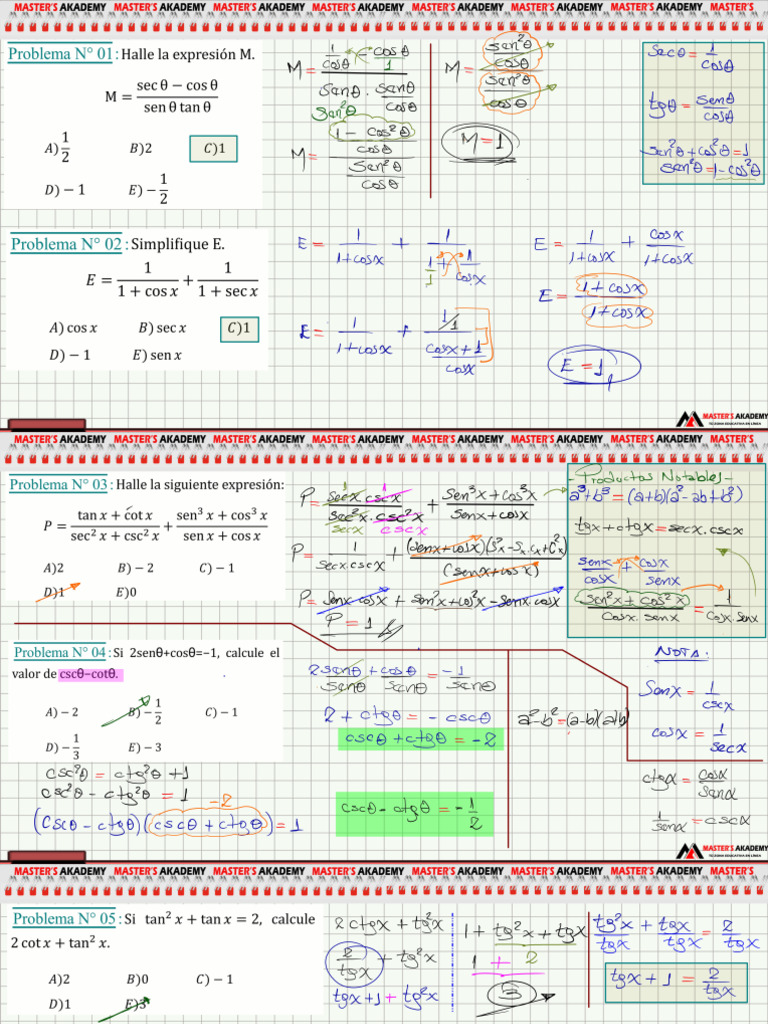 MASTER'S ACADEMY MASTER'S ACADEMY MASTER'S ACADEMY MASTER'S ACADEMY MASTER'S ACADEMY MASTER'S ACADEMY MASTER'S ACADEMY MASTER'S
Problema N° 01: Halle la expresión M.
M = (sec θ − cos θ)/(sen θ tan θ)
A) 1/2 B) 2 C) 1
D) − 1 E) − 1/2
M = (1/cosθ - cosθ/1)/(senθ · senθ/cosθ)
sen²θ
M = ((1 - cos²θ)/cosθ)/(sen²θ/cosθ)
M = (sen²θ/cosθ)/(sen²θ/cosθ)
M = 1
secθ = 1/cosθ
tgθ = senθ/cosθ
sen²θ + cos²θ = 1
sen²θ = 1 - cos²θ
Problema N° 02: Simplifique E.
E = 1/(1 + cos x) + 1/(1 + sec x)
A) cos x B) sec x C) 1
D) − 1 E) sen x
E = 1/(1+cosx) + 1/(1/1 + 1/cosx)
E = 1/(1+cosx) + (1/1)/((cosx+1)/cosx)
E = 1/(1+cosx) + cosx/(1+cosx)
E = (1+cosx)/(1+cosx)
E = 1
MASTER'S ACADEMY
TU ZONA EDUCATIVA EN LÍNEA
MASTER'S ACADEMY MASTER'S ACADEMY MASTER'S ACADEMY MASTER'S ACADEMY MASTER'S ACADEMY MASTER'S ACADEMY MASTER'S ACADEMY MASTER'S
Problema N° 03: Halle la siguiente expresión:
P = (tan x + cot x)/(sec² x + csc² x) + (sen³ x + cos³ x)/(sen x + cos x)
A) 2 B) − 2 C) − 1
D) 1 E) 0
P = (secx · cscx)/(sec²x · csc²x) + (sen³x + cos³x)/(senx + cosx)
secx cscx
P = 1/(secx cscx) + (senx+cosx)(S²x - Sx.Cx + C²x)/(senx+cosx)
P = senx cosx + sen²x + cos²x - senx.cosx
P = 1
- Productos Notables -
a³+b³ = (a+b)(a²-ab+b²)
tgx + ctgx = secx.cscx
senx/cosx + cosx/senx
(sen²x + cos²x)/(cosx.senx) = 1/(cosx.senx)
Problema N° 04: Si 2senθ+cosθ=−1, calcule el
valor de cscθ−cotθ.
A) − 2 B) − 1/2 C) − 1
D) − 1/3 E) − 3
csc²θ = ctg²θ + 1
csc²θ - ctg²θ = 1
-2
(cscθ - ctgθ)(cscθ + ctgθ) = 1
2senθ/senθ + cosθ/senθ = -1/senθ
2 + ctgθ = - cscθ
cscθ + ctgθ = -2
cscθ - ctgθ = -1/2
a²-b² = (a-b)(a+b)
NOTA:
Senx = 1/cscx
cosx = 1/secx
ctgα = cosα/senα
1/senα = cscα
MASTER'S ACADEMY
TU ZONA EDUCATIVA EN LÍNEA
MASTER'S ACADEMY MASTER'S ACADEMY MASTER'S ACADEMY MASTER'S ACADEMY MASTER'S ACADEMY MASTER'S ACADEMY MASTER'S ACADEMY MASTER'S
Problema N° 05: Si tan² x + tan x = 2, calcule
2 cot x + tan² x.
A) 2 B) 0 C) − 1
D) 1 E) 3
2ctgx + tg²x
2/tgx + tg²x
tgx + 1 + tg²x
1 + tg²x + tgx
1 + 2
3
tg²x/tgx + tgx/tgx = 2/tgx
tgx + 1 = 2/tgx